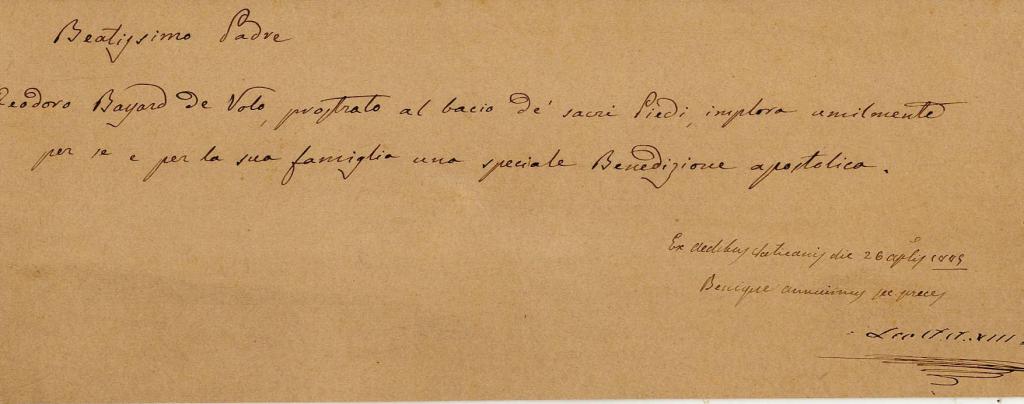 Beatissimo Padre
Teodoro Bayard de Volo, prostrato al bacio de' sacri Piedi, implora umilmente
per se e per la sua famiglia una speciale Benedizione apostolica.
Ex aedibus Vaticanis die 26 aplis
Benigne annuimus preces
Leo PP. XIII.